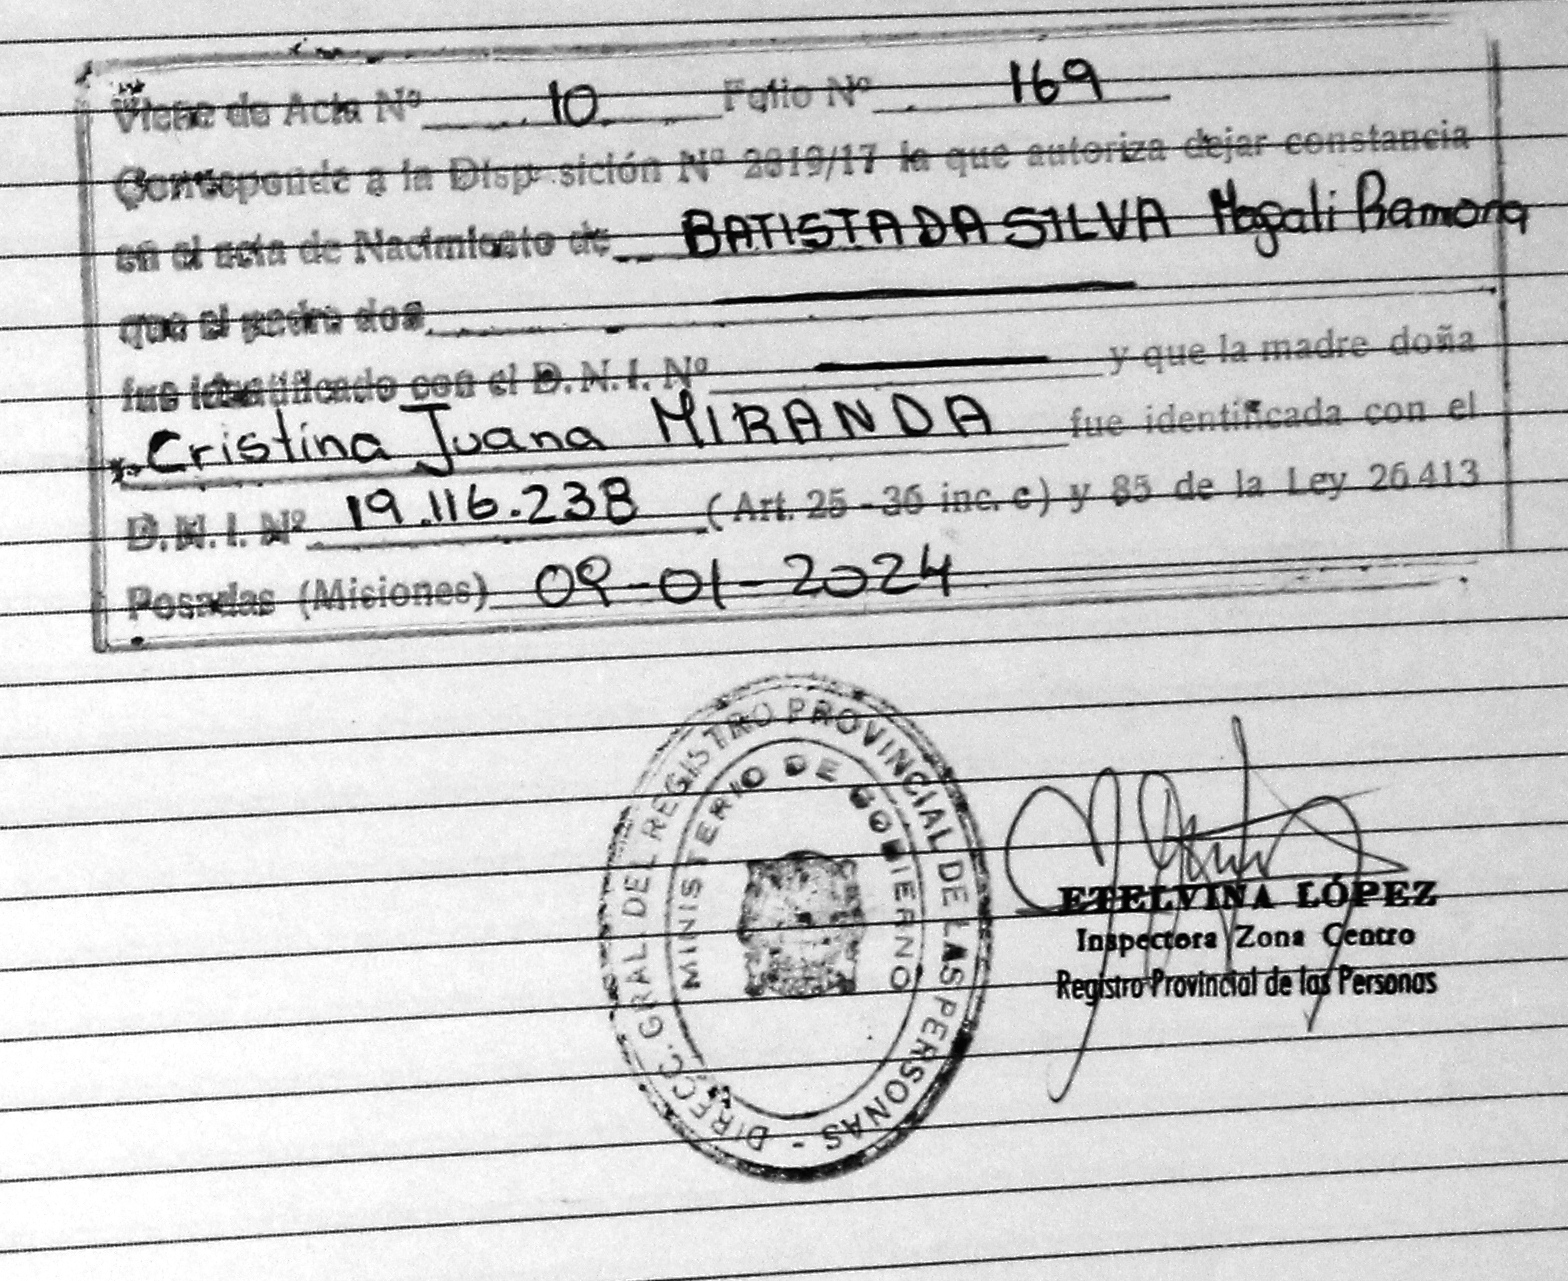 Viene de Acta Nº 10 Folio Nº 169
Corresponde a la Disp sición Nº 2819/17 la que autoriza dejar constancia
en el acta de Nacimiento de BATISTA DA SILVA Magali Ramona
que el padre don
fue identificado con el D.N.I. Nº y que la madre doña
Cristina Juana MIRANDA fue identificada con el
D.N.I. Nº 19.116.238 (Art. 25 - 36 inc. c) y 85 de la Ley 26413
Posadas (Misiones) 09-01-2024
DIRECC. GRAL. DEL REGISTRO PROVINCIAL DE LAS PERSONAS -
MINISTERIO DE GOBIERNO
ETELVINA LÓPEZ
Inspectora Zona Centro
Registro Provincial de las Personas